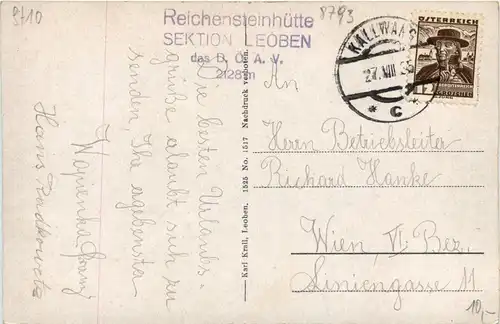 8710
Reichensteinhütte
SEKTION LEOBEN
des D. Ö. A. V.
2128m
8793
KALLWANG
27.VIII.35
* c
ÖSTERREICH
12
Die besten Urlaubs-
grüße erlaubt sich zu
senden, Ihr ergebenster
Hans
Karl Krall, Leoben. 1525 No. 1517 Nachdruck verboten.
An
Herrn Betriebsleiter
Richard Hanke
Wien, VI. Bez.
Liniengasse 11
10,-